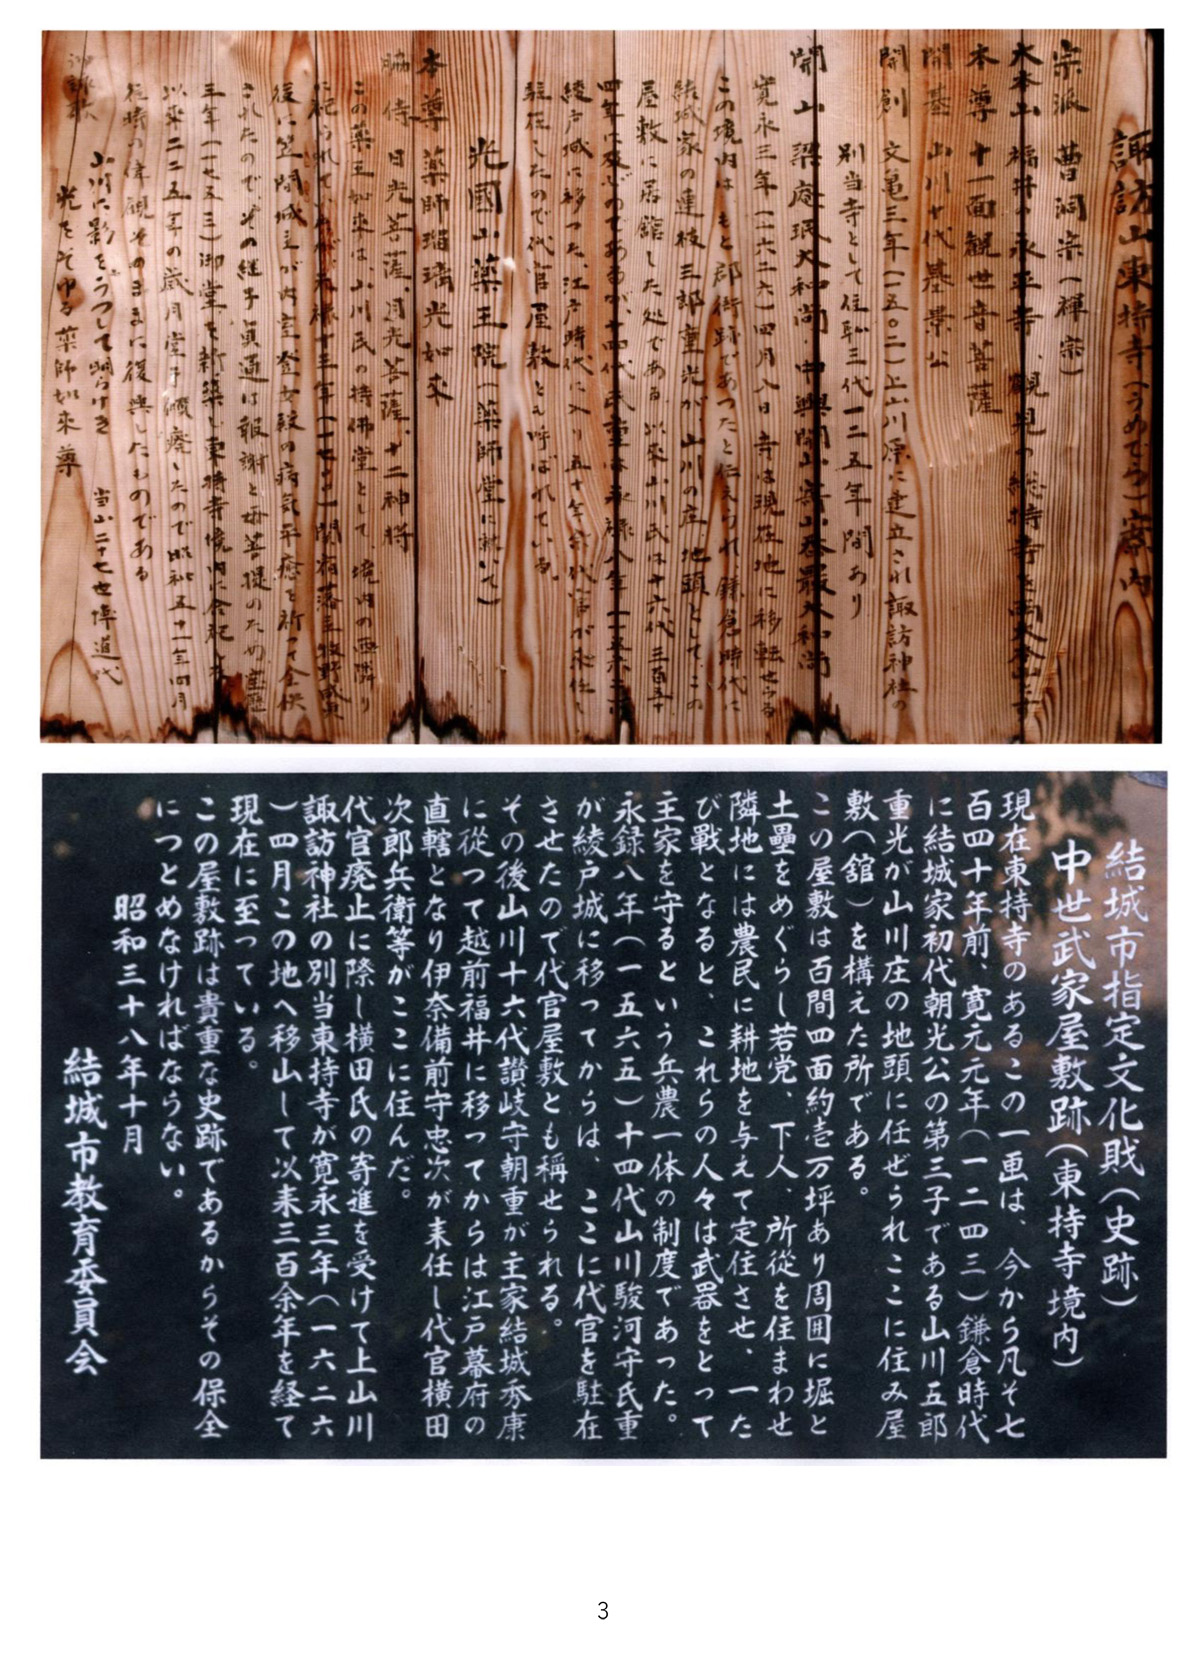 諏訪山東持寺(うめでら)案内
宗派 曹洞宗(禅宗)
大本山 福井の永平寺、鶴見の総持寺を両大本山とす
本尊 十一面観世音菩薩
開基 山川十代基景公
開創 文亀三年(一五〇二)上山川原に建立され諏訪神社の
別当寺として住職三代一二五年間あり
開山 梁庵珉大和尚、中興開山
寛永三年(一六二六)四月八日寺は現在地に移転せらる
この境内はもと郡衙跡であったと伝えられ、鎌倉時代に
結城家の連枝三郎重光が、山川の庄地頭として、この
屋敷に居館した処である、以来山川氏は十六代三百五十
四年に及ぶのであるが、十四代氏重は永禄八年(一五六五)
綾戸城に移った、江戸時代に入り五十年余代官が来任して
駐在したので代官屋敷とも呼ばれている
光國山薬王院(薬師堂に就いて)
本尊 薬師瑠璃光如来
脇侍 日光菩薩、月光菩薩、十二神将
この薬王如来は、山川氏の持佛堂として、境内の西隣り
に祀られていたが、元禄十三年(一七〇〇)関宿藩主牧野成貞
後に笠間城主が内室登女殿の病気平癒を祈って全快
されたので、その継子貞通は報謝と母菩提のため、宝暦
三年(一七五三)御堂を新築し東持寺境内に合祀
以来二二五年の歳月堂宇頽廃したので昭和五十一年四月
往時の偉観そのままに復興したものである
御詠歌
山川に影をうつして明らけき
光をそゆる薬師如来尊
当山二十七世 道代
結城市指定文化財(史跡)
中世武家屋敷跡(東持寺境内)
現在東持寺のあるこの一画は、今から凡そ七
百四十年前、寛元元年(一二四三)鎌倉時代
に結城家初代朝光公の第三子である山川五郎
重光が山川庄の地頭に任ぜられここに住み屋
敷(舘)を構えた所である。
この屋敷は百間四面約壱万坪あり周囲に堀と
土壘をめぐらし若党、下人、所従を住まわせ
隣地には農民に耕地を与えて定住させ、一た
び戰となると、これらの人々は武器をとって
主家を守るという兵農一体の制度であった。
永録八年(一五六五)十四代山川駿河守氏重
が綾戸城に移ってからは、ここに代官を駐在
させたので代官屋敷とも稱せられる。
その後山川十六代讃岐守朝重が主家結城秀康
に從って越前福井に移ってからは江戸幕府の
直轄となり伊奈備前守忠次が来任し代官横田
次郎兵衛等がここに住んだ。
代官廃止に際し横田氏の寄進を受けて上山川
諏訪神社の別当東持寺が寛永三年(一六二六
)四月この地へ移山して以来三百余年を経て
現在に至っている。
この屋敷跡は貴重な史跡であるからその保全
につとめなければならない。
昭和三十八年十月
結城市教育委員会
3